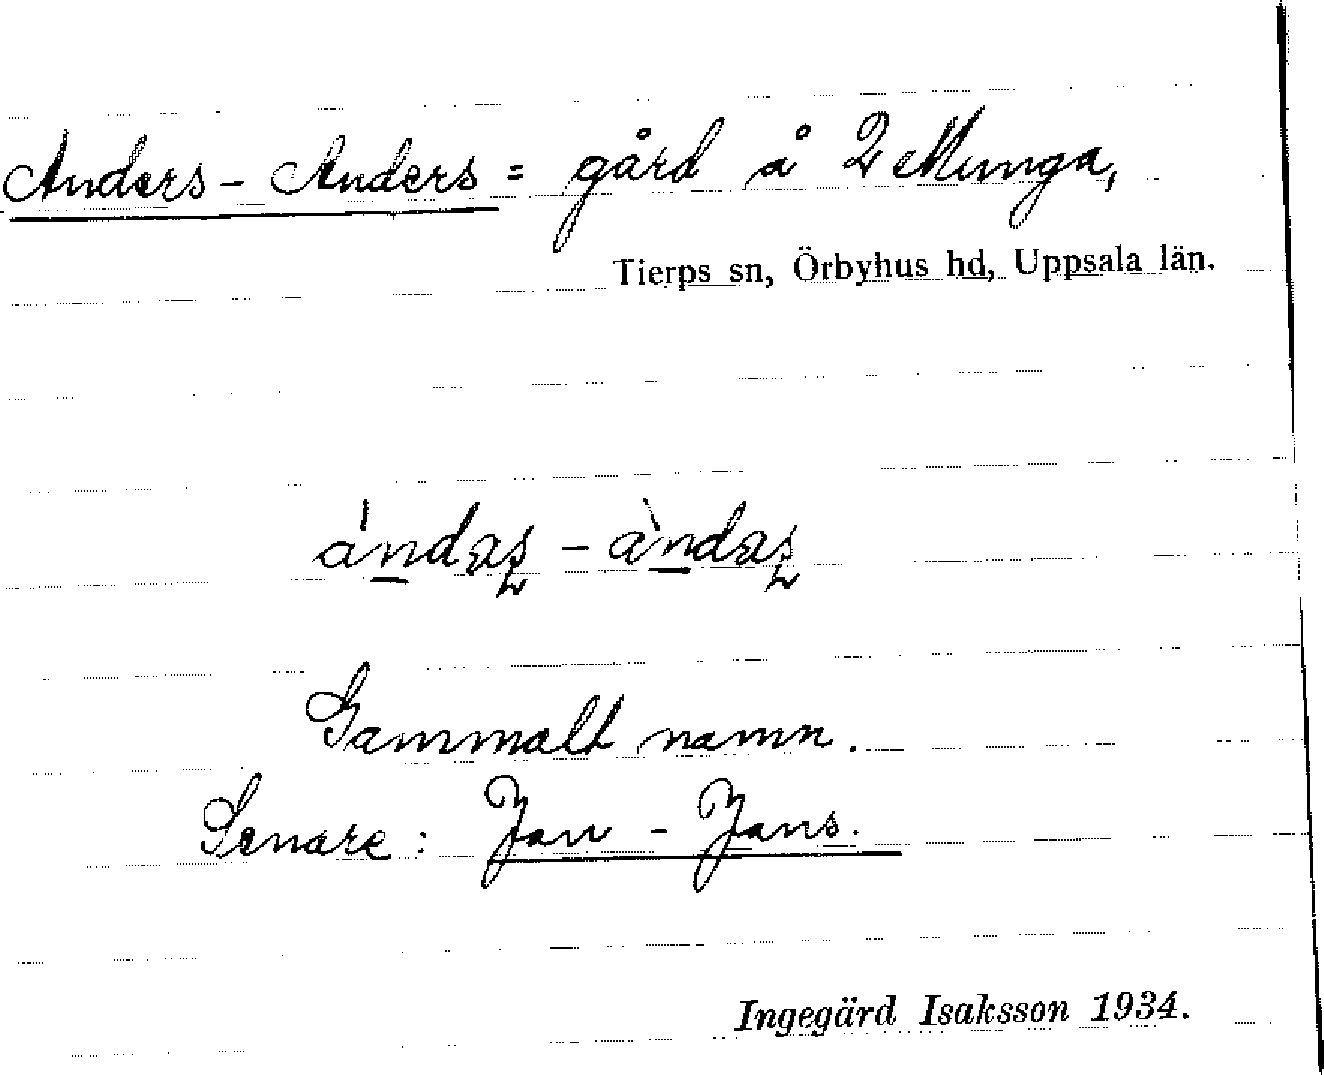 Anders - Anders = gård å 2 Munga,
Tierps sn, Örbyhus hd, Uppsala län.
ándaʂ - àndaʂ
Gammalt namn.
Senare: Jan - Jans.
Ingegärd Isaksson 1934.